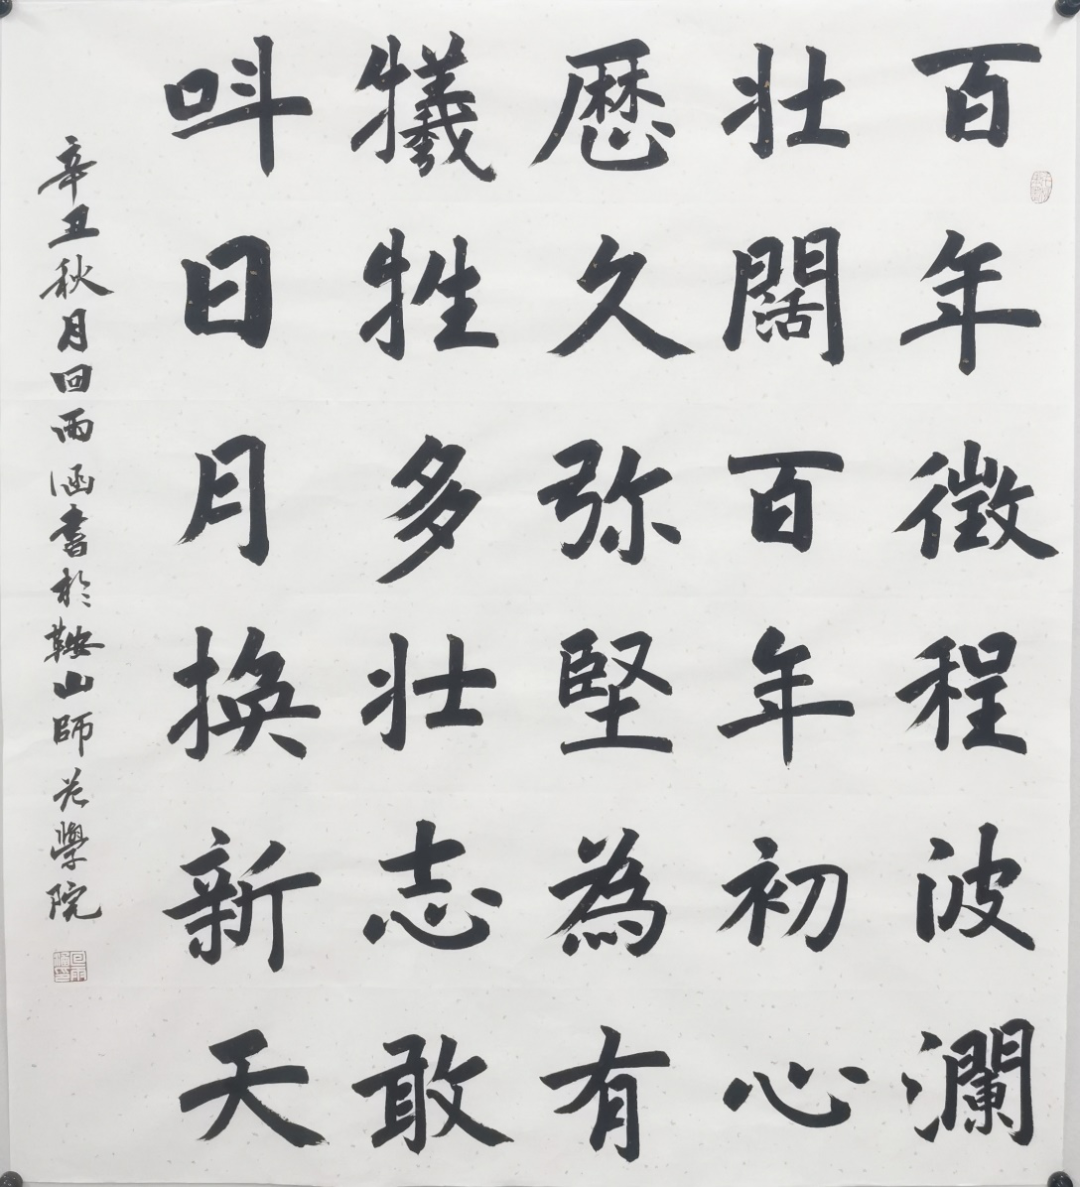 百年徵程波瀾
壮闊百年初心
歷久弥堅為有
犧牲多壮志敢
呌日月換新天
辛丑秋月回雨涵書於鞍山師范學院